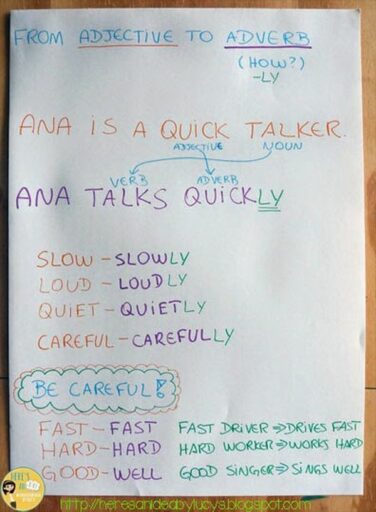 FROM ADJECTIVE TO ADVERB
(HOW?)
-LY
ANA IS A QUICK TALKER.
ADJECTIVE NOUN
VERB ADVERB
ANA TALKS QUICKLY
SLOW - SLOWLY
LOUD - LOUDLY
QUIET - QUIETLY
CAREFUL - CAREFULLY
BE CAREFUL!
FAST - FAST FAST DRIVER => DRIVES FAST
HARD - HARD HARD WORKER => WORKS HARD
GOOD - WELL GOOD SINGER => SINGS WELL
HERE'S
http://heresanideabylucys.blogspot.com